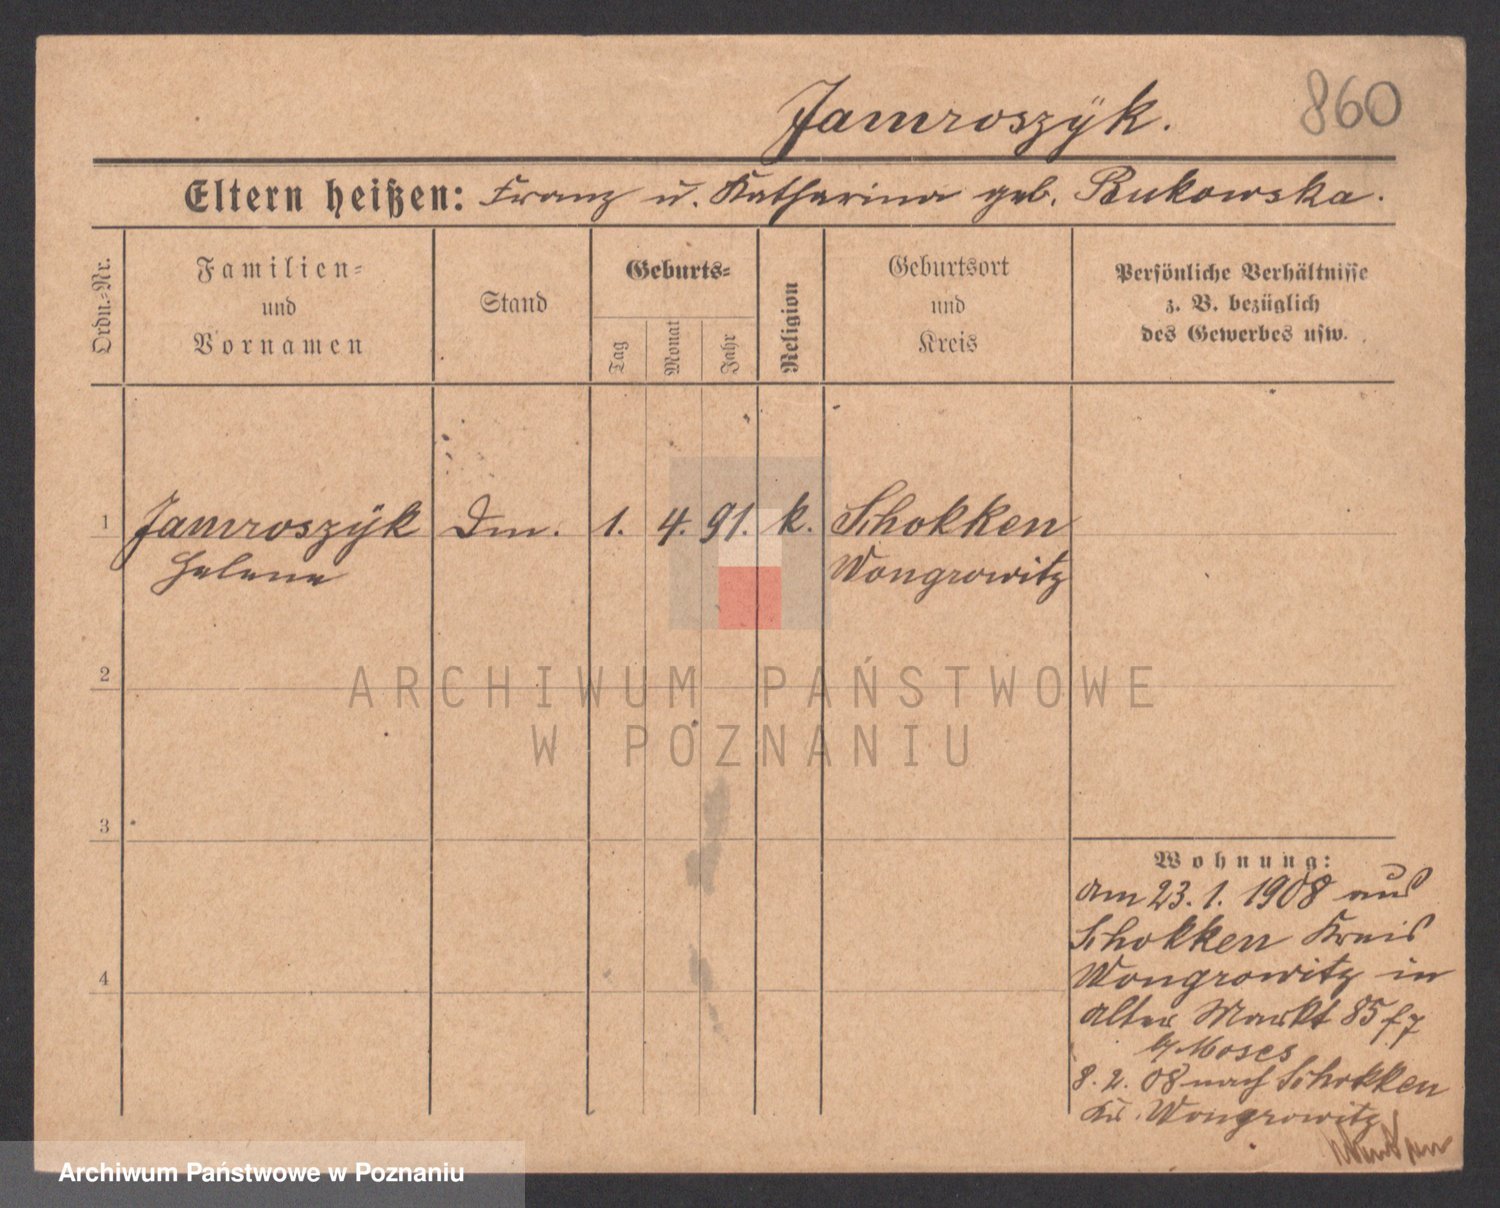 860
Jamroszÿk.
Eltern heißen: Franz u. Katharina geb. Rukowska.
Ordn.-Nr.
Familien-
und
Vornamen
Stand
Geburts-
Tag
Monat
Jahr
Religion
Geburtsort
und
Kreis
Persönliche Verhältnisse
z. B. bezüglich
des Gewerbes usw.
1 Jamroszÿk Dm. 1. 4. 91. k. Schokken
Helene Wongrowitz
2
ARCHIWUM PAŃSTWOWE
W POZNANIU
3
4
Wohnung:
am 23. 1. 1908 aus
Schokken Kreis
Wongrowitz in
Alter Markt 85
b/ Moses
8. 2. 08 nach Schokken
Kr. Wongrowitz
Archiwum Państwowe w Poznaniu